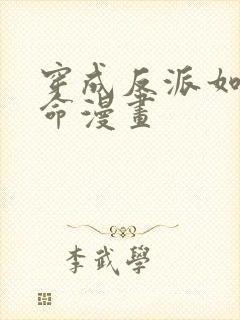 穿成反派如
命漫畫
李武學